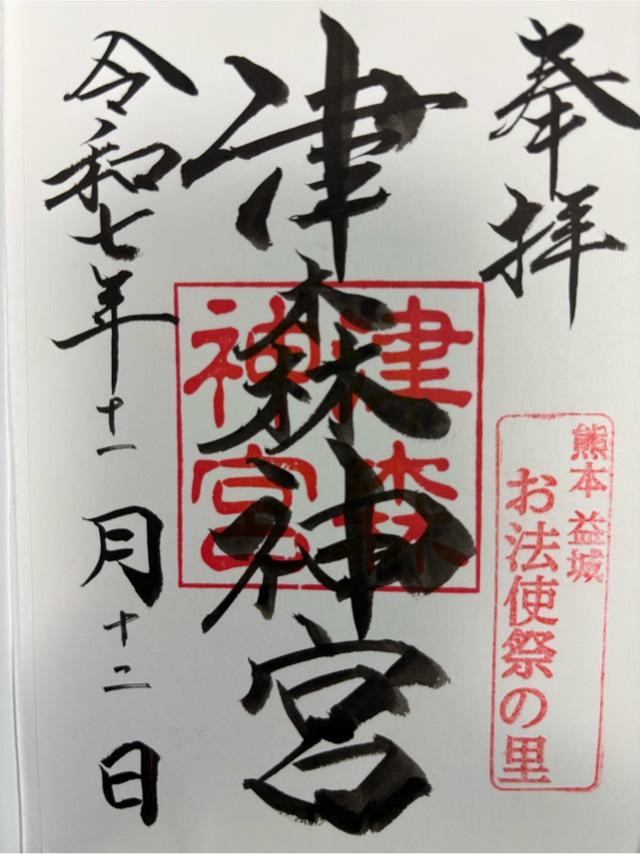 奉拝
熊本 益城
お法使祭の里
津森神宮
津森
神宮
令和七年十一月十二日